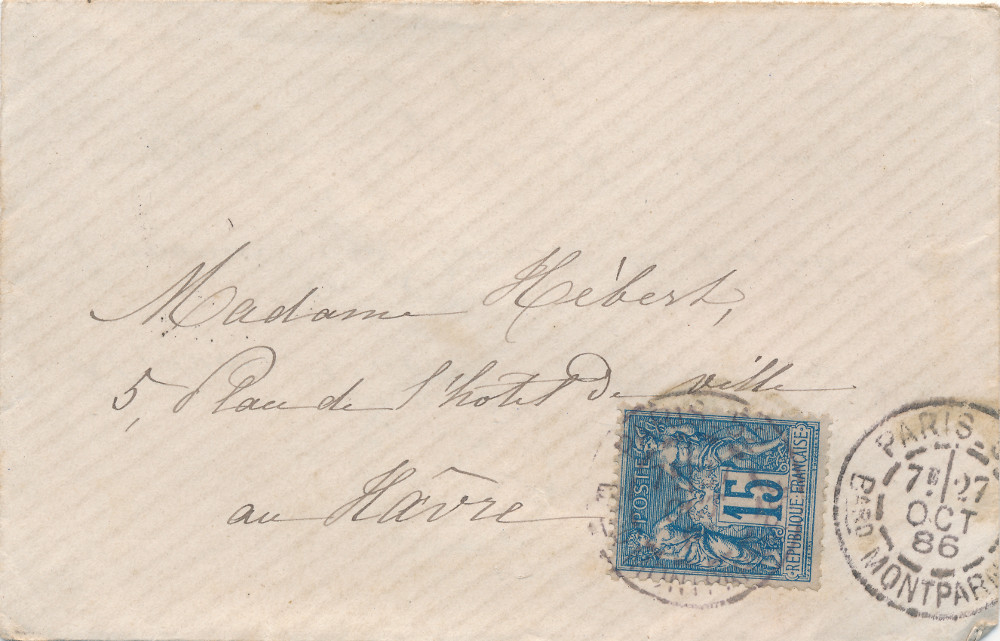 Madame Hébert,
5, Place de l'hôtel De ville
au Hâvre
POSTES
15
REPUBLIQUE FRANÇAISE
PARIS
7E 27
OCT
86
BARD MONTPARN